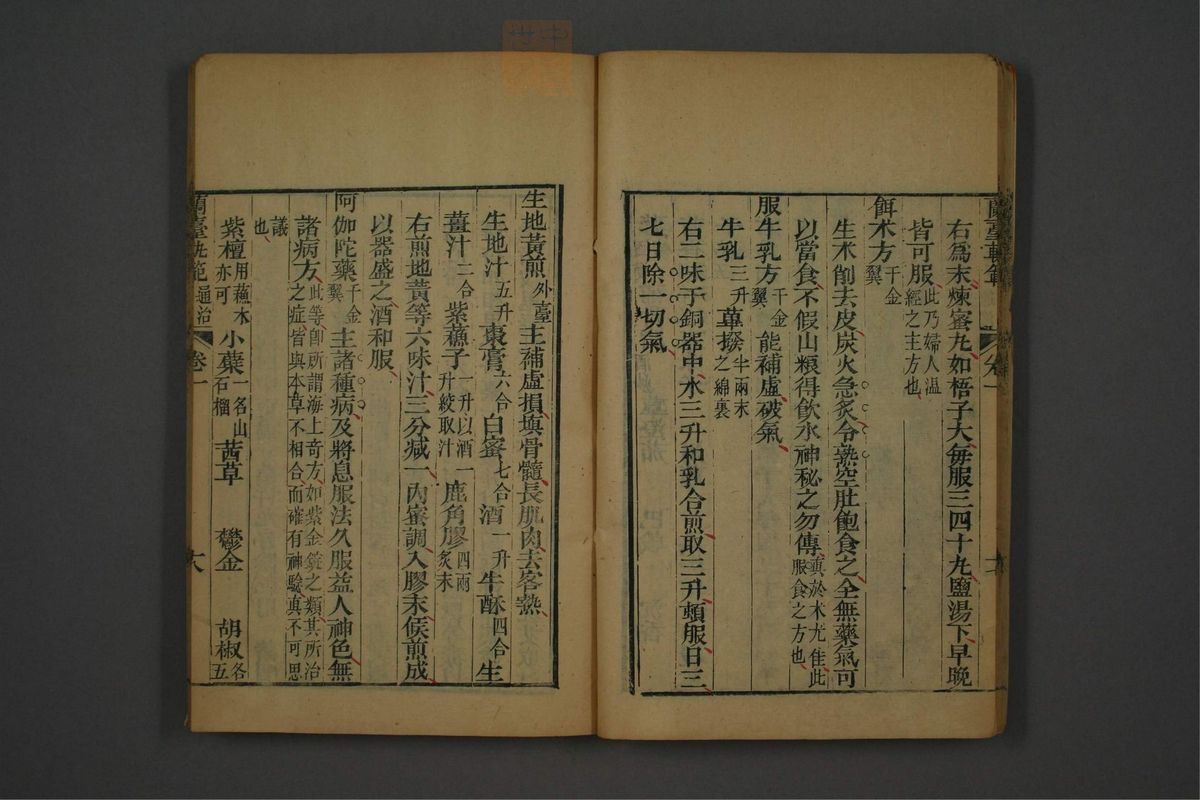 蘭臺軌範
卷一
右為末煉蜜丸如梧子大每服三四十丸鹽湯下早晚
皆可服此乃婦人温經之主方也
餌术方千金翼
生术削去皮炭火急炙令熱空肚飽食之全無藥氣可
以當食不假山粮得飲水神秘之勿傳真於术尤佳此服食之方也
服牛乳方千金翼能補虚破氣
牛乳三升蓽撥半兩末之綿裹
右二味于銅器中水三升和乳合煎取三升頓服日三
七日除一切氣
生地黃煎外臺主補虛損填骨髓長肌肉去客熱
生地汁五升棗膏六合白蜜七合酒一升牛酥四合生
薑汁二合紫蘇子一升以酒一升絞取汁鹿角膠四兩炙末
右煎地黃等六味汁三分减一內蜜調入膠末候煎成
以器盛之酒和服
阿伽陀藥千金翼主諸種病及將息服法久服益人神色無
諸病方此等卽所謂海上奇方如紫金錠之類其所治之症皆與本草不相合而確有神驗真不可思
議也
紫檀用蘸木亦可小蘗一名山石榴茜草 鬱金 胡椒各五
蘭臺軌範通治
卷一